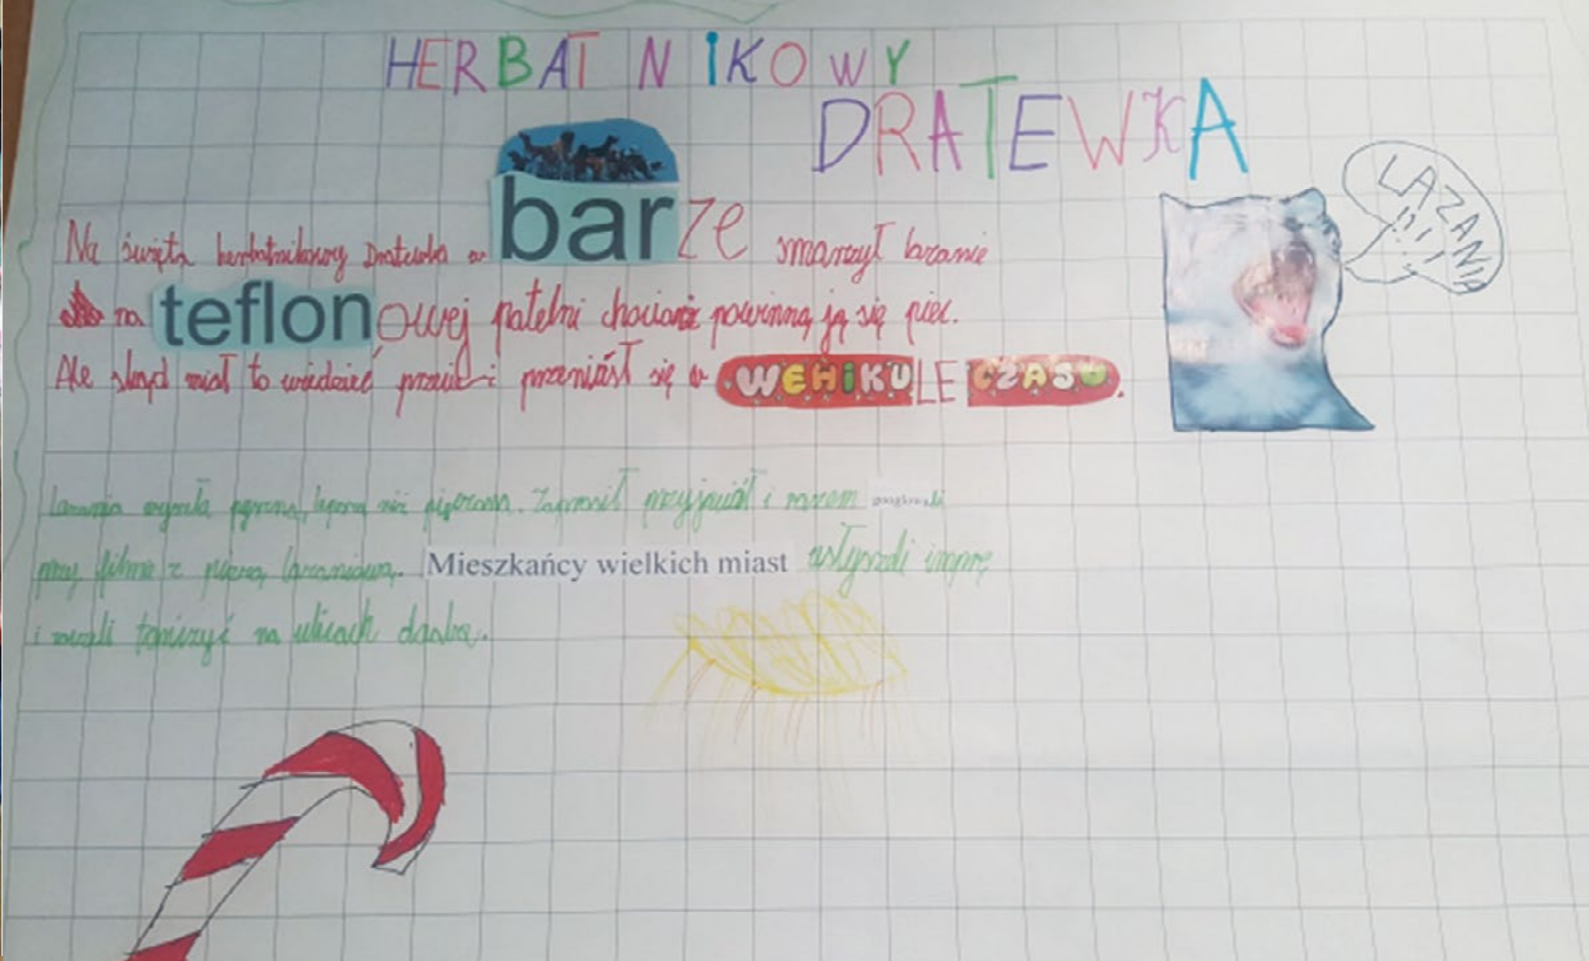 HERBATNIKOWY
DRATEWKA
Na święta herbatnikowy Dratewka w barze smarzył lazanie
na teflonowej patelni chociarz powinną ją się piec.
Ale skąd miał to wiedzieć przecież przeniósł się w WEHIKULE CZASU.
LAZANIA
!?!!
Lazania wyszła pyszna, lepszą niż pieczona. Zaprosił przyjaciół i razem
przy filmie z lazaniową. Mieszkańcy wielkich miast usłyszeli imprę
i zaczęli tańczyć na ulicach